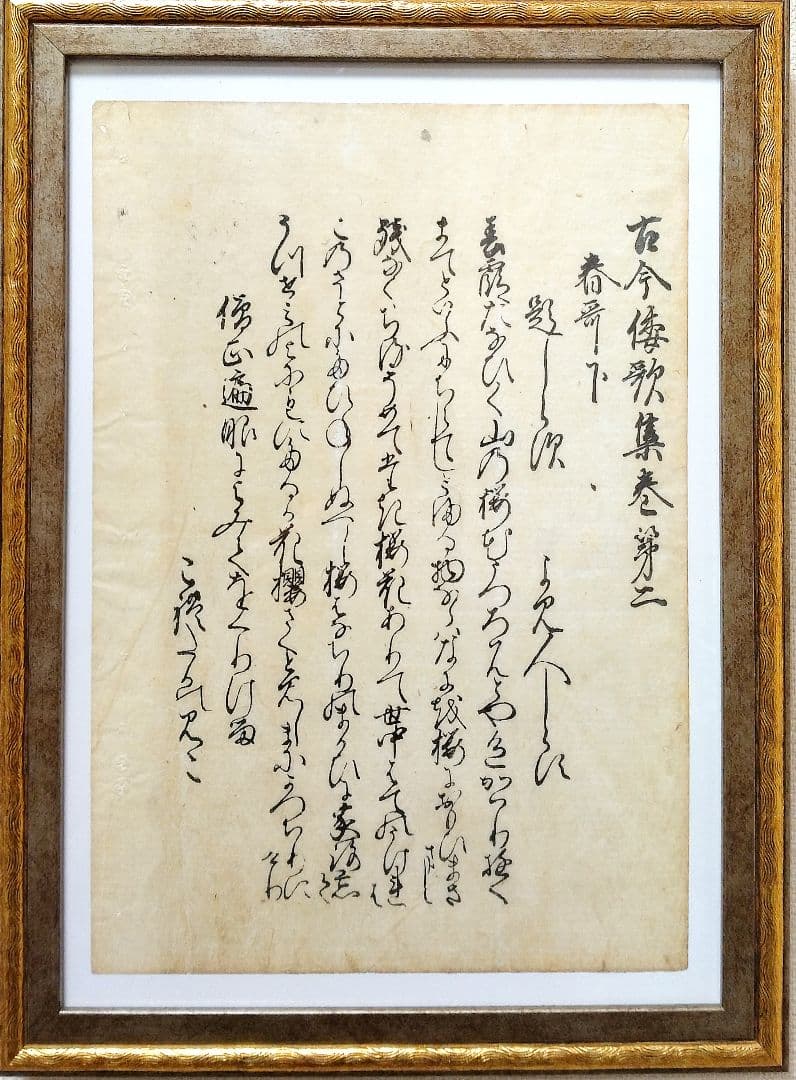 古今倭歌集巻第二
春哥下
題しらす　よみ人しらす
春霞たなひく山乃桜花うつろはんとや色かはりゆく
まてといふにちらてしとまる物ならはなにを桜におもひまさまし
残なくちるそめてたき桜花ありて世中はてのうけれは
このさとにたひねしぬへし桜はなちりのまかひに家路忘て
うつせみの世にもにたるか花櫻さくと見しまにかつちりにけり
僧正遍昭によみてをくりける
これたかのみこ